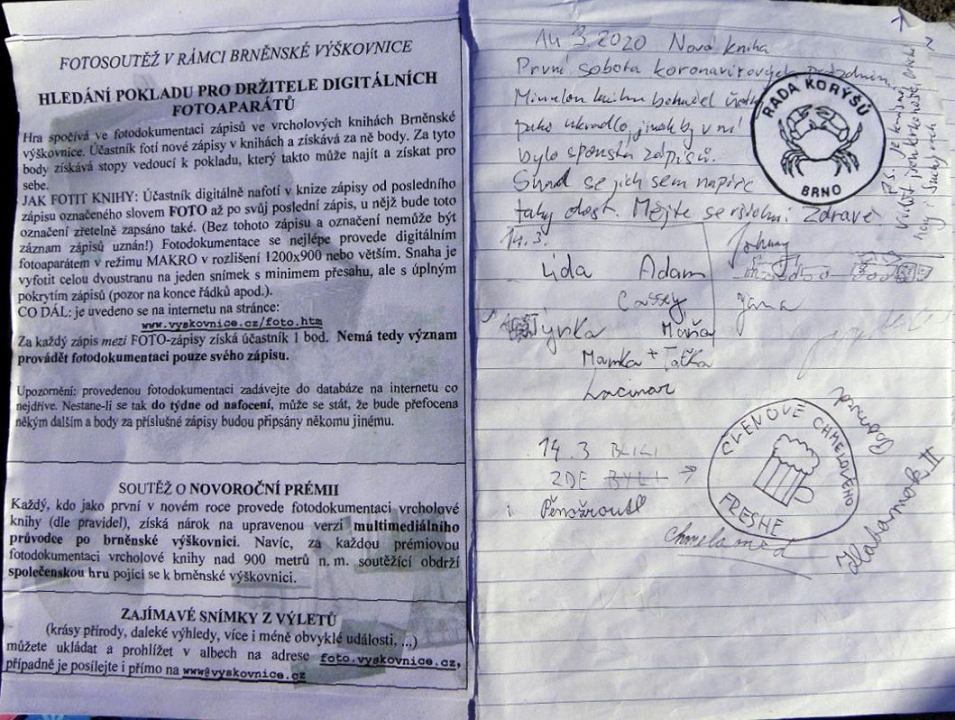 FOTOSOUTĚŽ V RÁMCI BRNĚNSKÉ VÝŠKOVNICE
HLEDÁNÍ POKLADU PRO DRŽITELE DIGITÁLNÍCH
FOTOAPARÁTŮ
Hra spočívá ve fotodokumentaci zápisů ve vrcholových knihách Brněnské
výškovnice. Účastník fotí nové zápisy v knihách a získává za ně body. Za tyto
body získává stopy vedoucí k pokladu, který takto může najít a získat pro
sebe.
JAK FOTIT KNIHY: Účastník digitálně nafotí v knize zápisy od posledního
zápisu označeného slovem FOTO až po svůj poslední zápis, u nějž bude toto
označení zřetelně zapsáno také. (Bez tohoto zápisu a označení nemůže být
záznam zápisů uznán!) Fotodokumentace se nejlépe provede digitálním
fotoaparátem v režimu MAKRO v rozlišení 1200x900 nebo větším. Snaha je
vyfotit celou dvoustranu na jeden snímek s minimem přesahu, ale s úplným
pokrytím zápisů (pozor na konce řádků apod.).
CO DÁL: je uvedeno se na internetu na stránce:
www.vyskovnice.cz/foto.htm
Za každý zápis mezi FOTO-zápisy získá účastník 1 bod. Nemá tedy význam
provádět fotodokumentaci pouze svého zápisu.
Upozornění: provedenou fotodokumentaci zadávejte do databáze na internetu co
nejdříve. Nestane-li se tak do týdne od nafocení, může se stát, že bude přefocena
někým dalším a body za příslušné zápisy budou připsány někomu jinému.
SOUTĚŽ O NOVOROČNÍ PRÉMII
Každý, kdo jako první v novém roce provede fotodokumentaci vrcholové
knihy (dle pravidel), získá nárok na upravenou verzi multimediálního
průvodce po brněnské výškovnici. Navíc, za každou prémiovou
fotodokumentaci vrcholové knihy nad 900 metrů n. m. soutěžící obdrží
společenskou hru pojící se k brněnské výškovnici.
ZAJÍMAVÉ SNÍMKY Z VÝLETŮ
(krásy přírody, daleké výhledy, více i méně obvyklé události, ...)
můžete ukládat a prohlížet v albech na adrese foto.vyskovnice.cz,
případně je posílejte i přímo na www@vyskovnice.cz
14.3.2020 Nová kniha
První sobota koronavirových prázdnin
Minulou knihu bohužel
ukradlo, jinak by v ní
bylo spousta zápisů.
Snad se jich sem napíše
taky dost. Mějte se Zdravě
RADA KORÝŠŮ
BRNO
14.3.
Johny
Lída Adam
Jana
Týnka Máňa
Mamka + Taťka
14.3 BLILI
ZDE BYLI →
i Pěnožrout
ČLENOVÉ CHMELOVÉHO
FRESHE